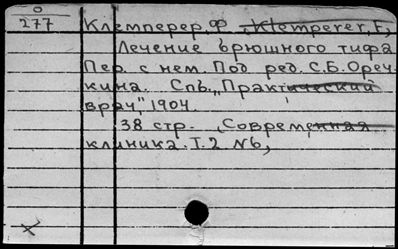 О
277
Клемперер, Ф. Klemperer, F,
Лечение брюшного тифа
Пер. с нем. Под ред. С.Б.Ореч-
кина. Спб. „Практический
врач", 1904.
38 стр. (Современная
клиника. Т.2 №6,